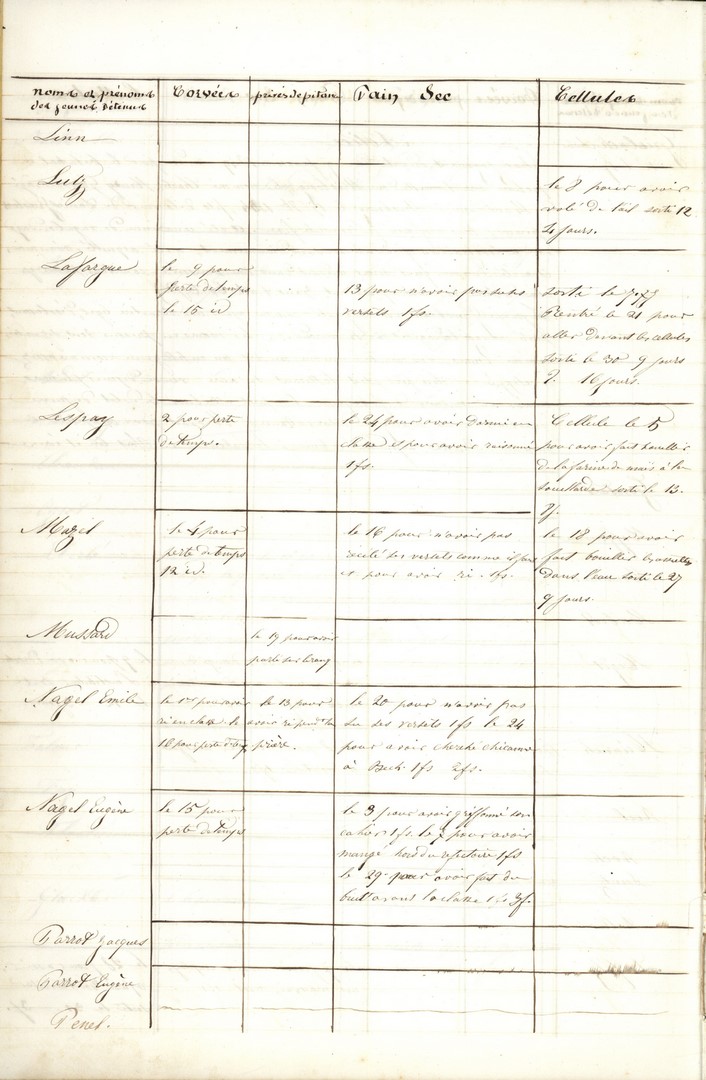 noms et prénoms
des jeunes détenus
Corvées
privés de pitance
Pain Sec
Cellules
Linn
Lutz
le 8 pour avoir
volé de l'ail sorti 12
4 jours.
Lafargue
le 9 pour
perte de temps
le 15 id
13 pour n'avoir pas su ses
versets 1 fs.
sorti le
Rentré le 21 pour
aller devant les cellules
sorti le 30 9 jours
16 jours.
Lespay
2 pour perte
de temps.
le 24 pour avoir dormi en
classe et pour avoir raisonné
1 fs.
Cellule le 5
pour avoir fait bouillir
de la farine de maïs à la
souillarde sorti le 13.
Mazel
le 4 pour
perte de temps
12 id.
le 16 pour n'avoir pas
récité ses versets comme il faut
et pour avoir ri. 1 fs.
le 18 pour avoir
fait bouillir
dans l'eau sorti le 27
9 jours.
Mussard
le 19 pour avoir
parlé sur le rang
Nagel Emile
le 1er pour avoir
ri en classe le
16 pour perte de
le 13 pour
avoir ri pendt la
prière.
le 20 pour n'avoir pas
su ses versets 1 fs le 24
pour avoir cherché chicanne
à 1 fs 2 fs.
Nagel Eugène
le 15 pour
perte de temps
le 3 pour avoir griffonné son
cahier 1 fs. le 7 pour avoir
mangé hors du refectoire 1 fs
le 29 pour avoir fait du
bruit avant la classe 1 fs 3 f.
Parrot Jacques
Parrot Eugène
Penel.